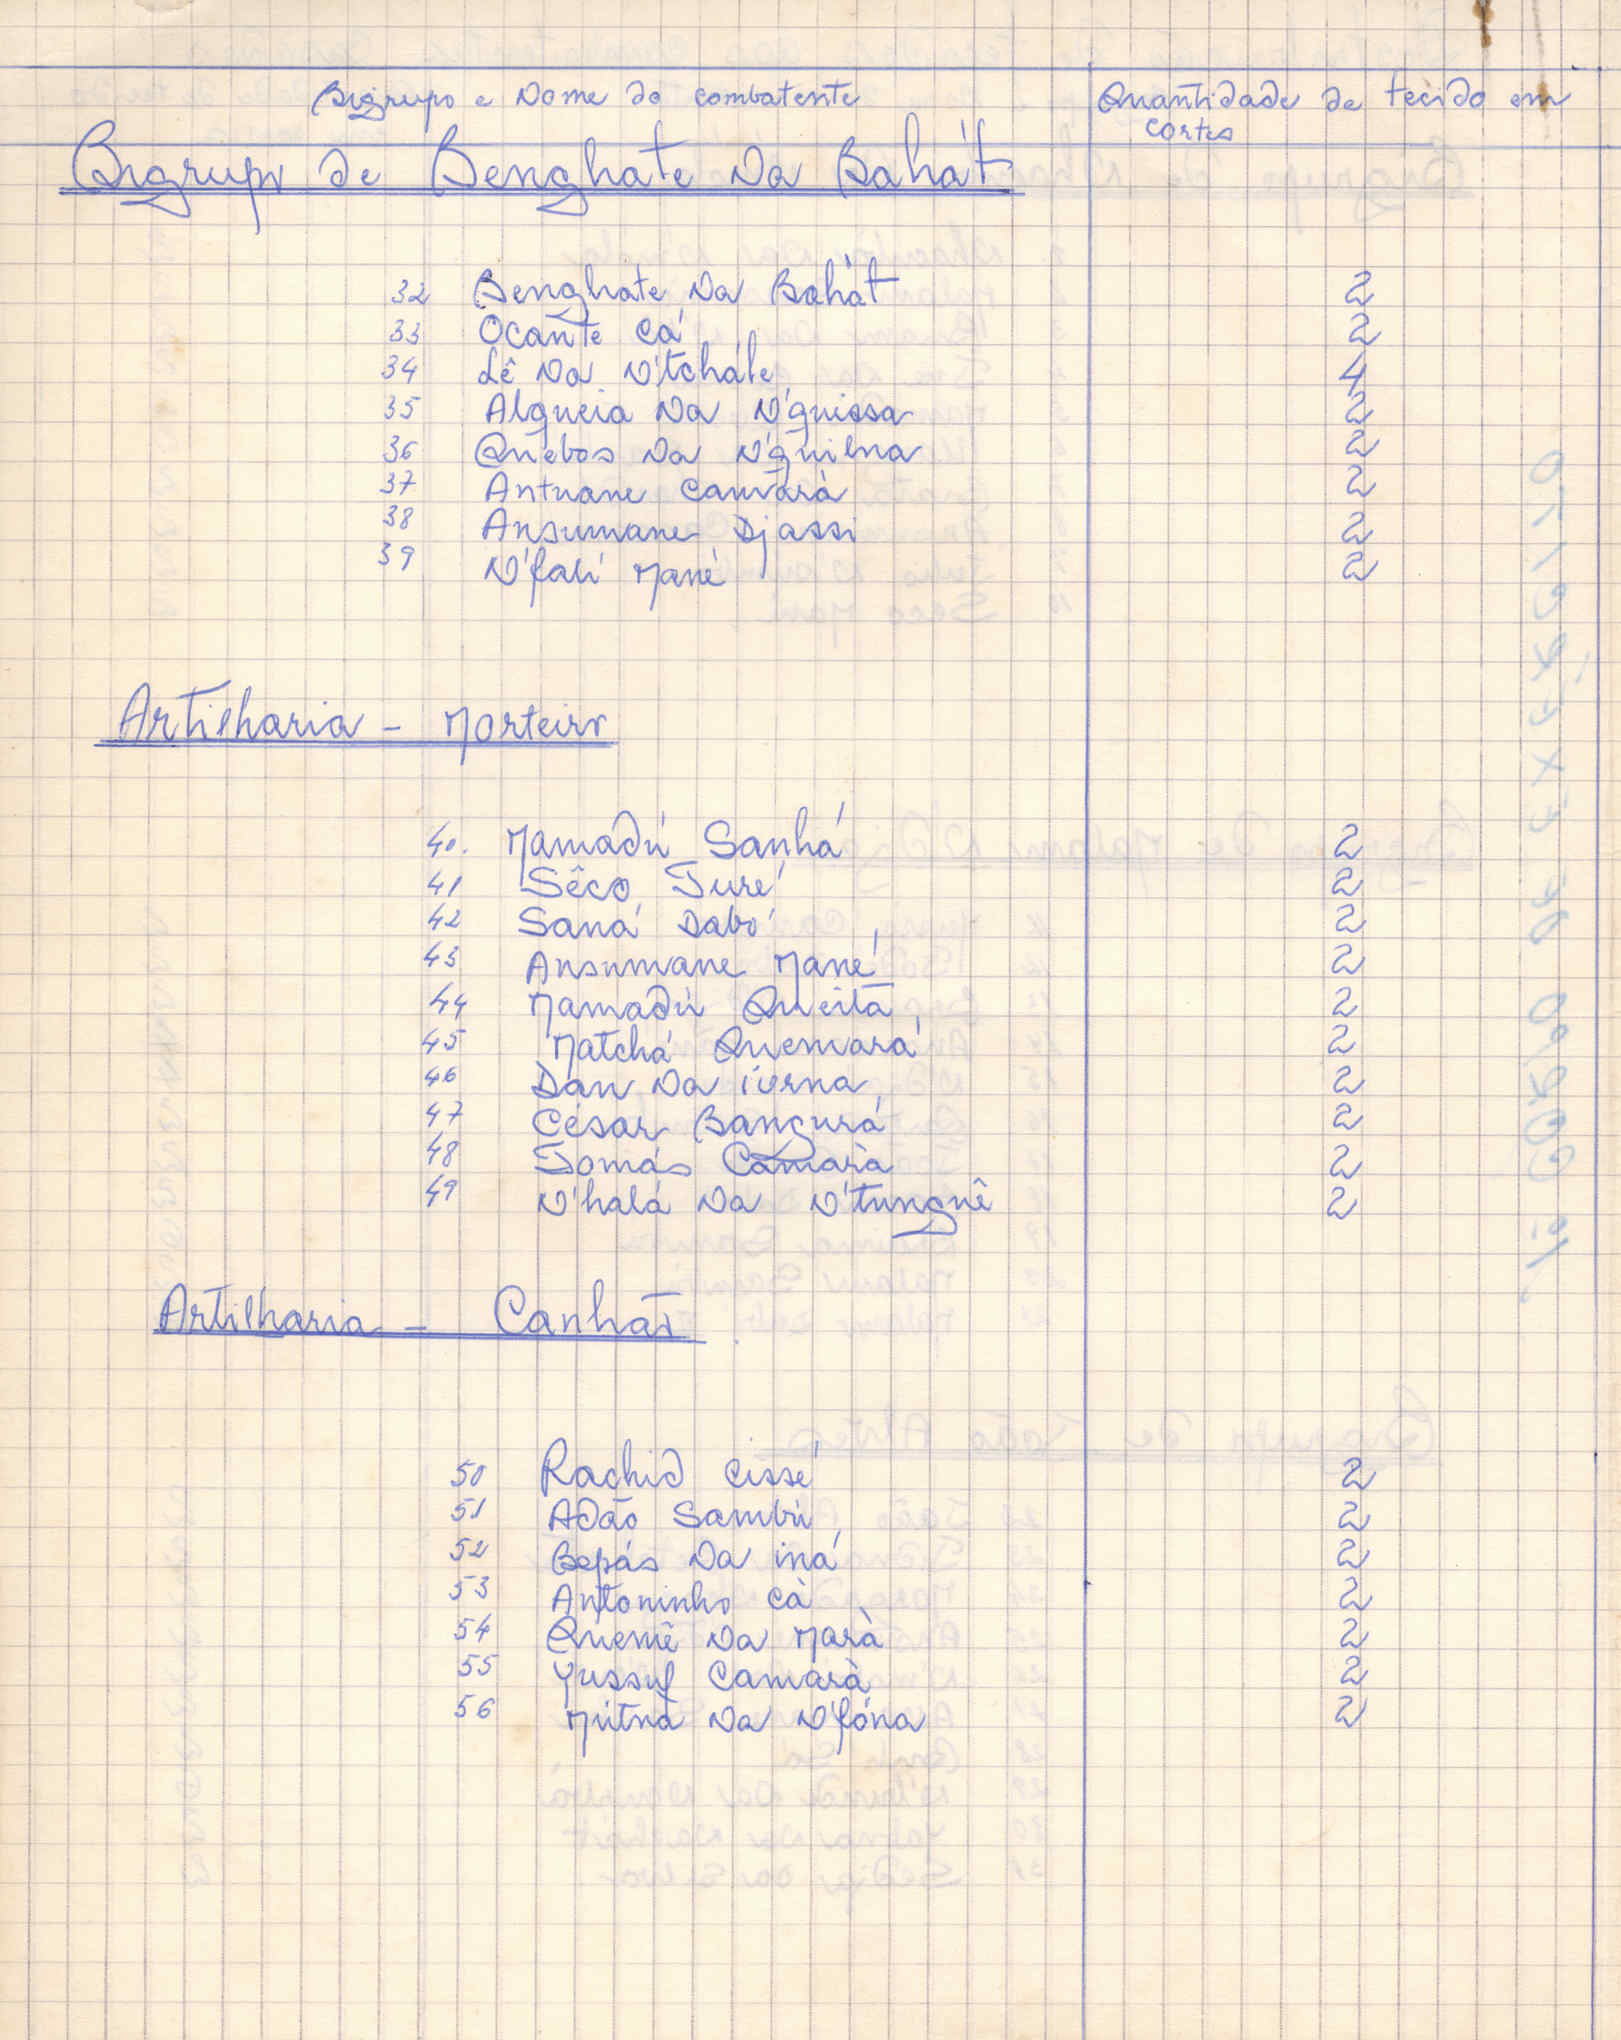 Bigrupo e Nome do combatente Quantidade de tecido em
cortes
Bigrupo de Benghate Na Bahát
32 Benghate Na Bahát 2
33 Ocante Cá 2
34 Lê Na N'tchále 4
35 Algueia Na N'guissa 2
36 Quebos Na N'guilna 2
37 Antuane Camarà 2
38 Ansumane Djassi 2
39 N'fali Mané 2
Artilharia - Morteiro
40. Mamadú Sanhá 2
41 Sêco Turé 2
42 Saná Dabó 2
43 Ansumane Mané 2
44 Mamadú Queita 2
45 Matchá Quemará 2
46 Dan Na iorna 2
47 César Bangurá 2
48 Tomás Camarà 2
49 N'halá Na N'tunguê 2
Artilharia - Canhão
50 Rachid Cissé 2
51 Adão Sambú 2
52 Bepás Na iná 2
53 Antoninho Cà 2
54 Quemê Na Marà 2
55 Yussuf Camarà 2
56 Mútna Na N'fóna 2